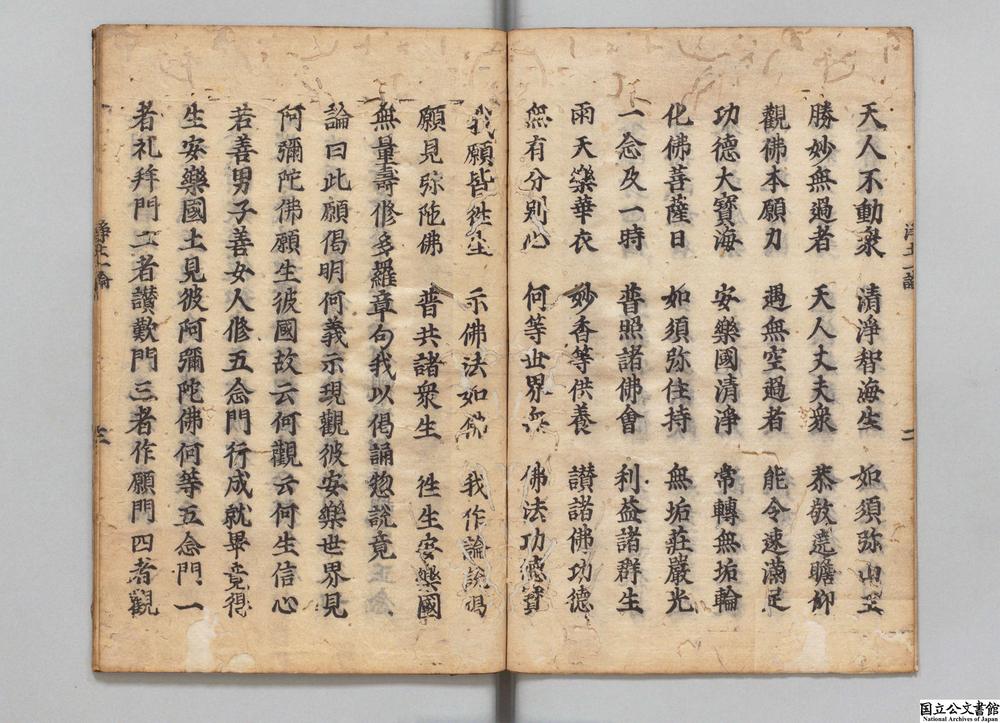 天人不動衆　清淨智海生　如須弥山王
勝妙無過者　天人丈夫衆　恭敬遶瞻仰
觀佛本願力　遇無空過者　能令速滿足
功德大寶海　安樂國清淨　常轉無垢輪
化佛菩薩日　如須弥住持　無垢莊嚴光
一念及一時　普照諸佛會　利益諸群生
雨天樂華衣　妙香等供養　讃諸佛功德
無有分別心　何等世界無　佛法功德寶
我願皆徃生　示佛法如佛　我作論説偈
願見弥陁佛　普共諸衆生　徃生安樂國
無量壽修多羅章句我以偈誦惣説竟
論曰此願偈明何義示現觀彼安樂世界見
阿彌陀佛願生彼國故云何觀云何生信心
若善男子善女人修五念門行成就畢竟得
生安樂國土見彼阿彌陀佛何等五念門一
者礼拜門二者讃歎門三者作願門四者觀
淨土論
二
淨土論
三
国立公文書館
National Archives of Japan